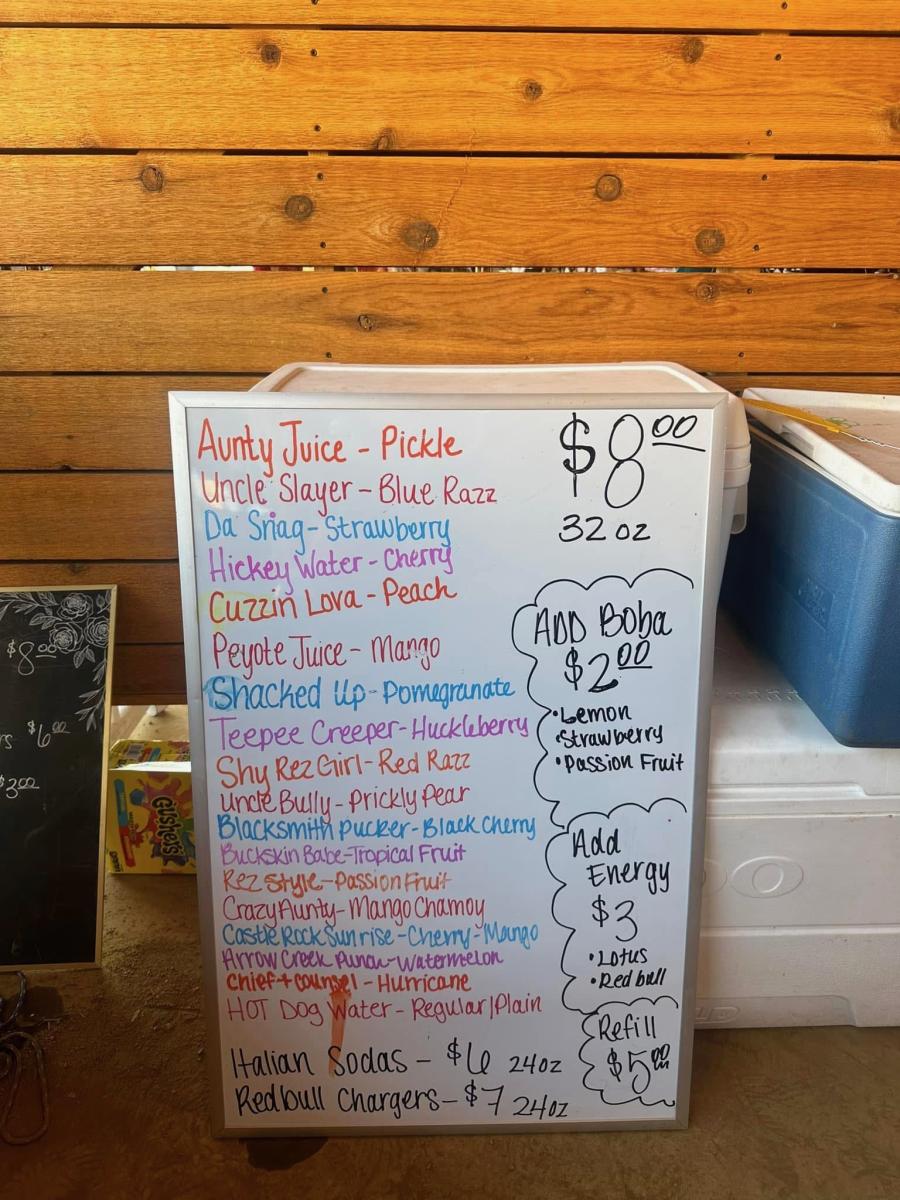 Aunty Juice - Pickle
Uncle Slayer - Blue Razz
Da Snag - Strawberry
Hickey Water - Cherry
Cuzzin Lova - Peach
Peyote Juice - Mango
Shacked Up - Pomegranate
Teepee Creeper - Huckleberry
Shy Rez Girl - Red Razz
Uncle Bully - Prickly Pear
Blacksmith Pucker - Black Cherry
Buckskin Babe - Tropical Fruit
Rez Style - Passion Fruit
Crazy Aunty - Mango Chamoy
Castle Rock Sunrise - Cherry - Mango
Arrow Creek Punch - Watermelon
Chief + Counsel - Hurricane
HOT Dog Water - Regular/Plain
Italian Sodas - $6 24oz
Redbull Chargers - $7 24oz
$8.00
32 oz
ADD Boba
$2.00
• Lemon
• Strawberry
• Passion Fruit
Add
Energy
$3
• Lotus
• Red bull
Refill
$5.00
$8.00
$6.00
$3.00
Gushers